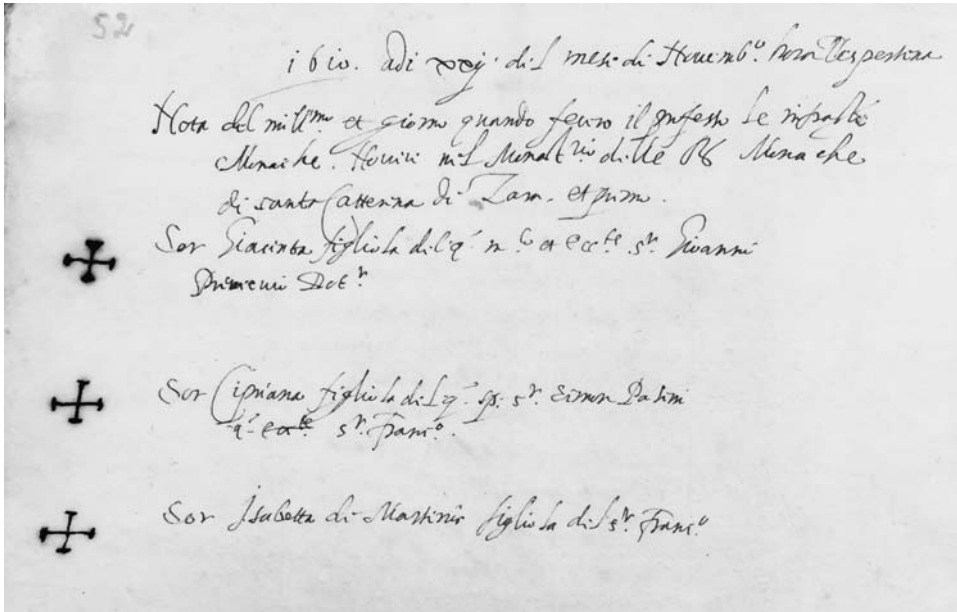 52
1610. adi xxj. del mese di Nouemb.º hora Vespertina
Nota del mill.mo et giorno quando fecero il professo le infra.tte
Monache. Nouicie nel Monast.rio delle RR Monache
di santa Catterina di Zara. et primo.
Sor Giacinta figliola del q.m m.co et ecc.te s.r Giovanni
Dot.r
Sor Cipriana figliola del q. sp. s.r Simon Pasini
q. ecc.te s.r Franc.º.
Sor Isabetta di Martinis figliola del s.r Franc.º